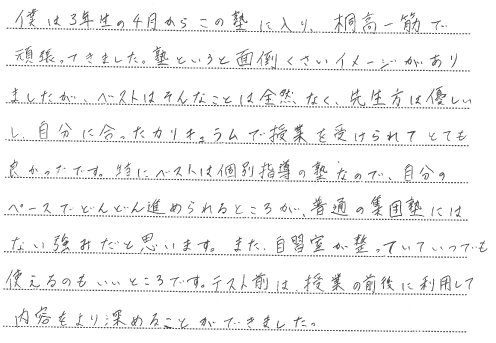 僕は3年生の4月からこの塾に入り、桐高一筋で
頑張ってきました。塾というと面倒くさいイメージがあり
ましたが、ベストはそんなことは全然なく、先生方は優しい
し、自分に合ったカリキュラムで授業を受けられてとても
良かったです。特にベストは個別指導の塾なので、自分の
ペースでどんどん進められるところが、普通の集団塾には
ない強みだと思います。また、自習室が整っていていつでも
使えるのもいいところです。テスト前は、授業の前後に利用して
内容をより深めることができました。